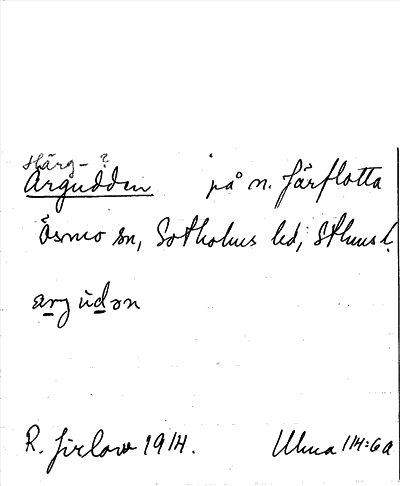 Härg- ?
Argudden på n. Järflotta
Ösmo sn, Sotholms hd, Sthms l.
arjùdən
R. Jirlow 1914. Ulma 114:6a